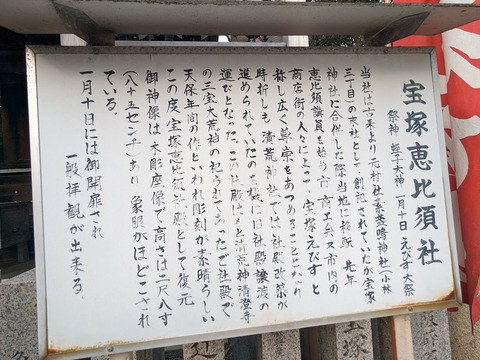 宝塚恵比須社
祭神 蛭子大神 一月十日 えびす大祭
当社は古来より元村社素盞嗚神社(小林
三丁目)の末社として創祀されていたが宝塚
神社に合併した際当地に移転 先年
恵比須講員を始め市商工会又市内の
商店街の人々によって、宝塚えびすと
称し広く尊崇をあつめることとなり
時折しも清荒神では社殿改築が
進められていたので機に旧社殿譲渡の
運びとなった。この社殿はもと清荒神清澄寺
の三宝大荒神の祀られてあったご社殿で
天保年間の作といわれ彫刻が素晴らしい
この度、宝塚恵比須社殿として復元
御神像は木彫座像で高さは二尺八寸
(八十五センチ)あり象眼がほどこされ
ている。
一月十日には御開扉され
一般拝観が出来る。